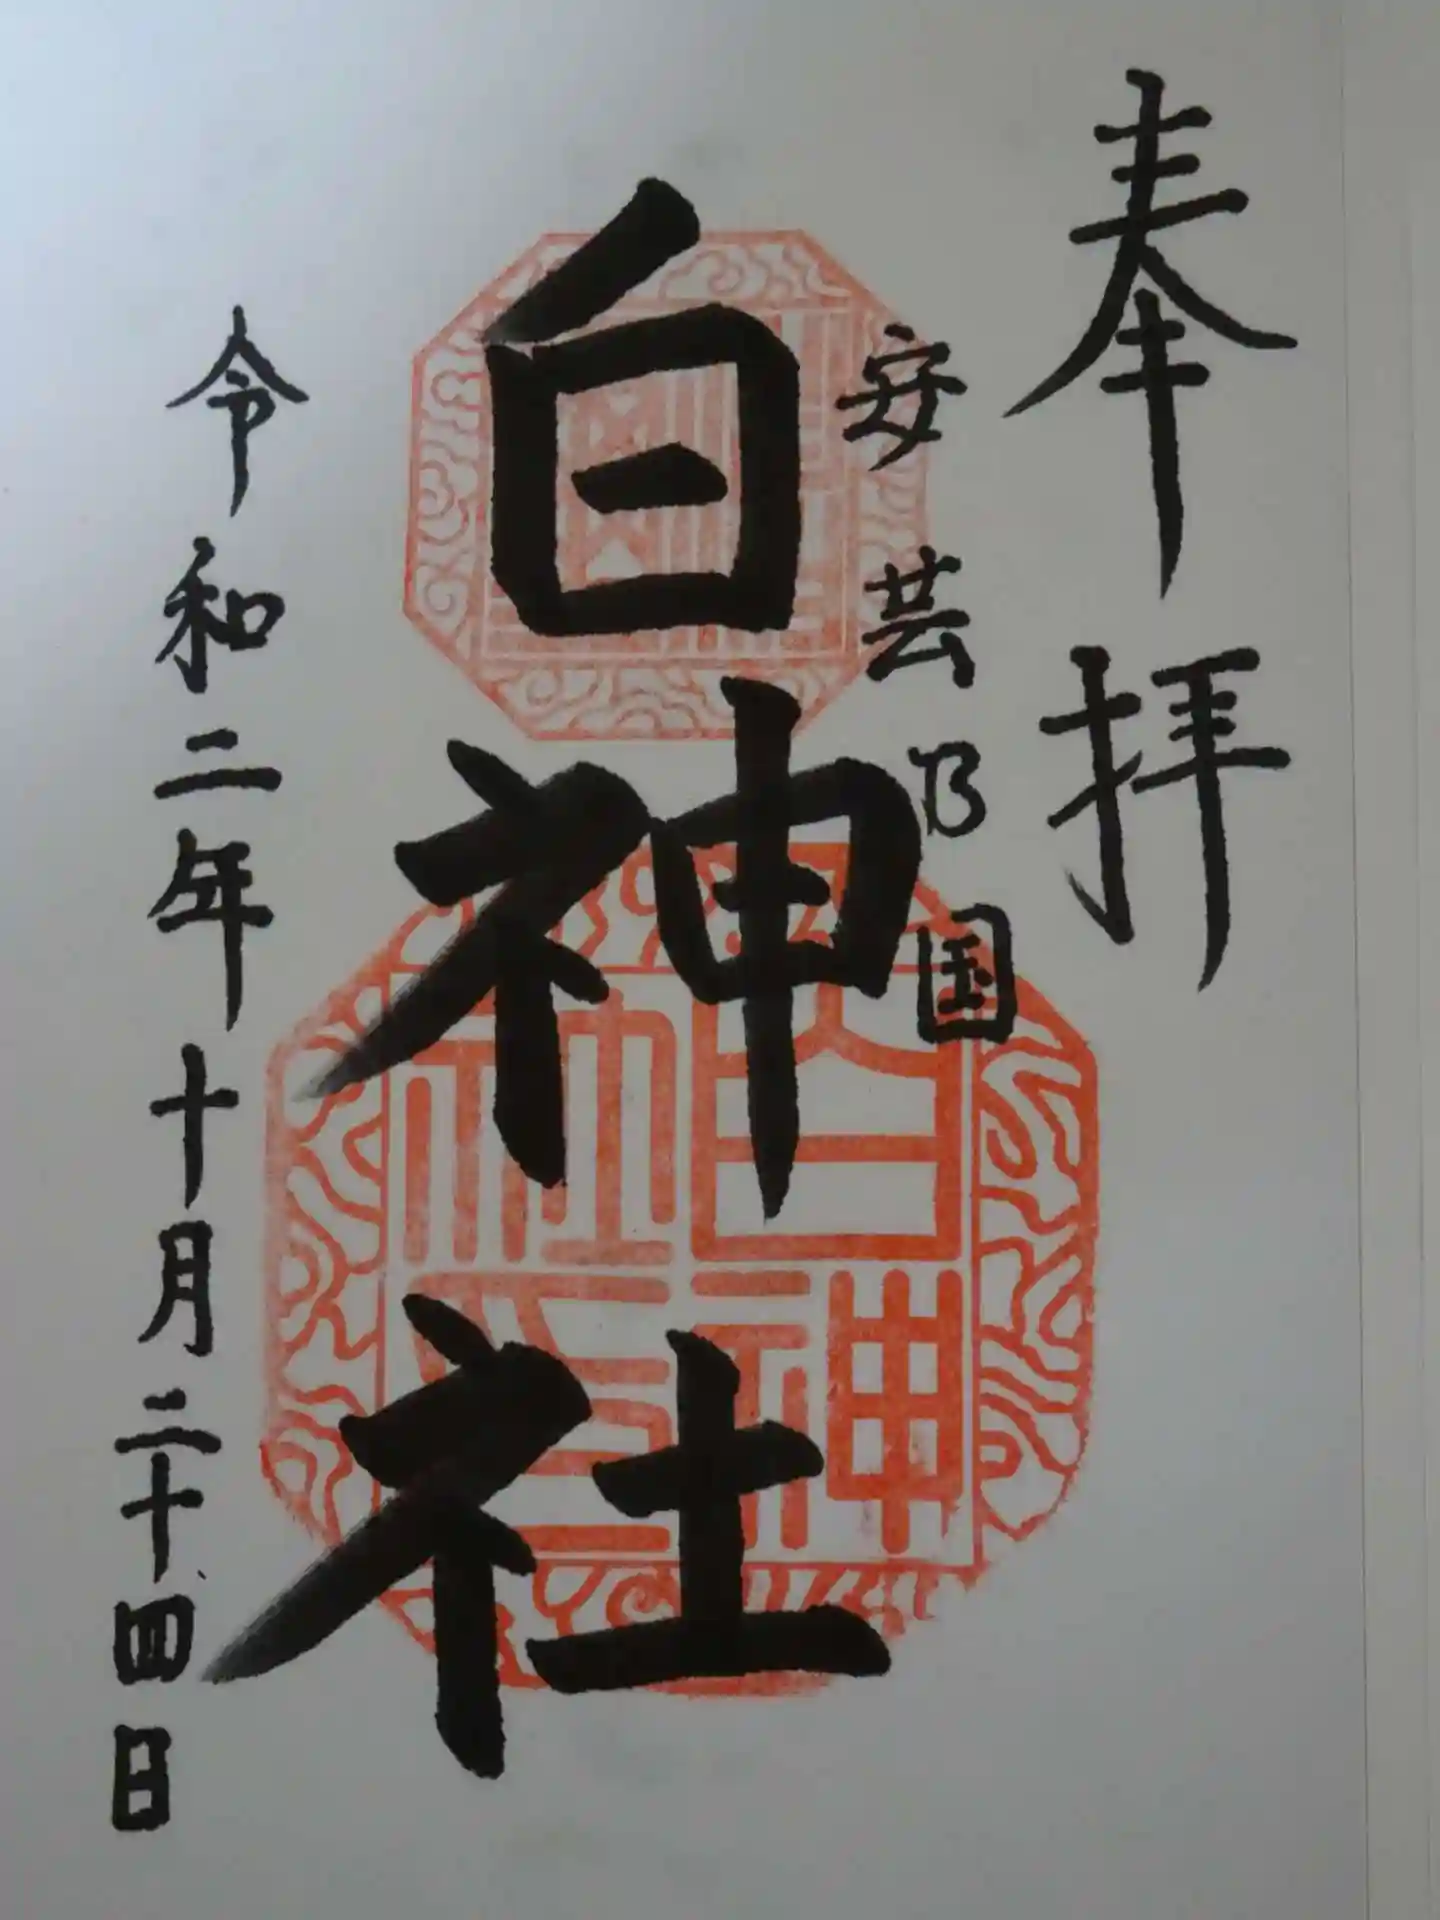 奉拝
安芸乃国
白神社
令和二年十月二十四日
白神
社印